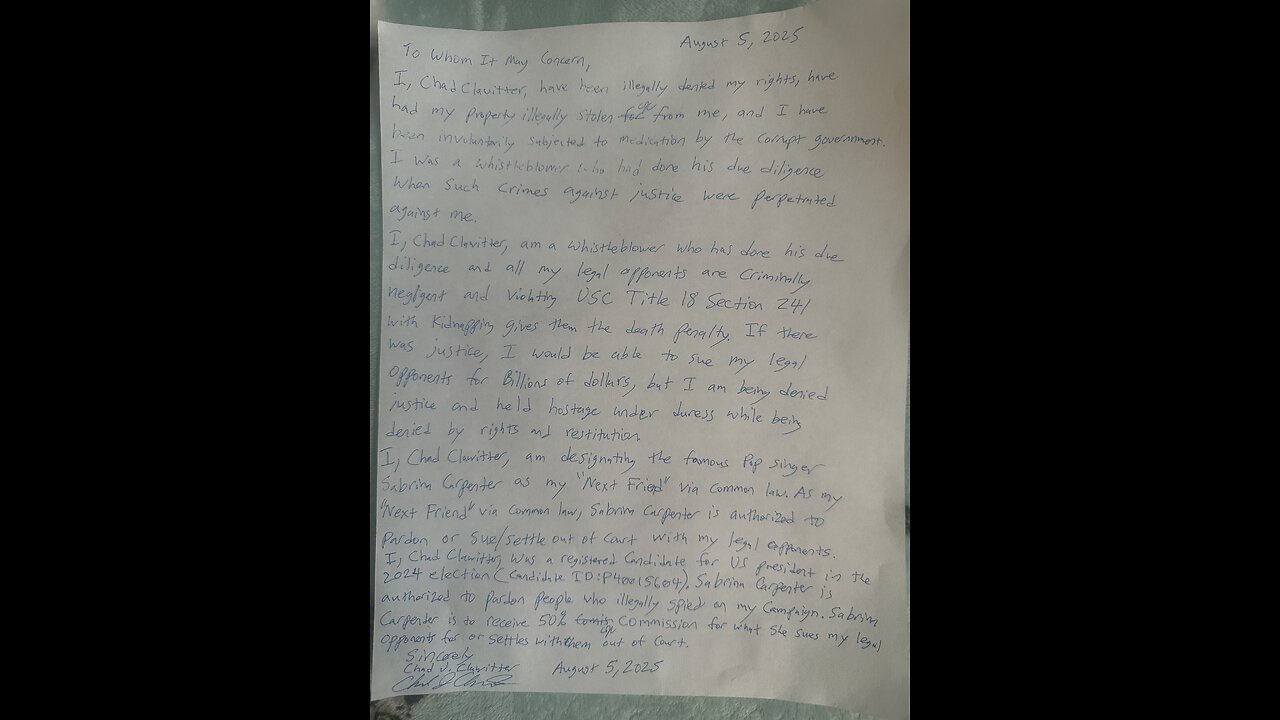 August 5, 2025
To Whom It May Concern,
I, Chad Clawitter, have been illegally denied my rights, have
had my property illegally stolen from me, and I have
been involuntarily subjected to medication by the corrupt government.
I was a whistleblower who had done his due diligence
when such crimes against justice were perpetrated
against me.
I, Chad Clawitter, am a whistleblower who has done his due
diligence and all my legal opponents are criminally
negligent and violating USC Title 18 Section 241
with Kidnapping gives them the death penalty. If there
was justice, I would be able to sue my legal
opponents for Billions of dollars, but I am being denied
justice and held hostage under duress while being
denied by rights and restitution.
I, Chad Clawitter, am designating the famous Pop singer
Sabrina Carpenter as my "Next Friend" via common law. As my
"Next Friend" via common law, Sabrina Carpenter is authorized to
pardon or sue/settle out of court with my legal opponents.
I, Chad Clawitter, was a registered candidate for US president in the
2024 election (Candidate ID: P40015604). Sabrina Carpenter is
authorized to pardon people who illegally spied on my campaign. Sabrina
Carpenter is to receive 50% commission for what she sues my legal
opponents for or settles with them out of court.
Sincerely
Chad J. Clawitter August 5, 2025